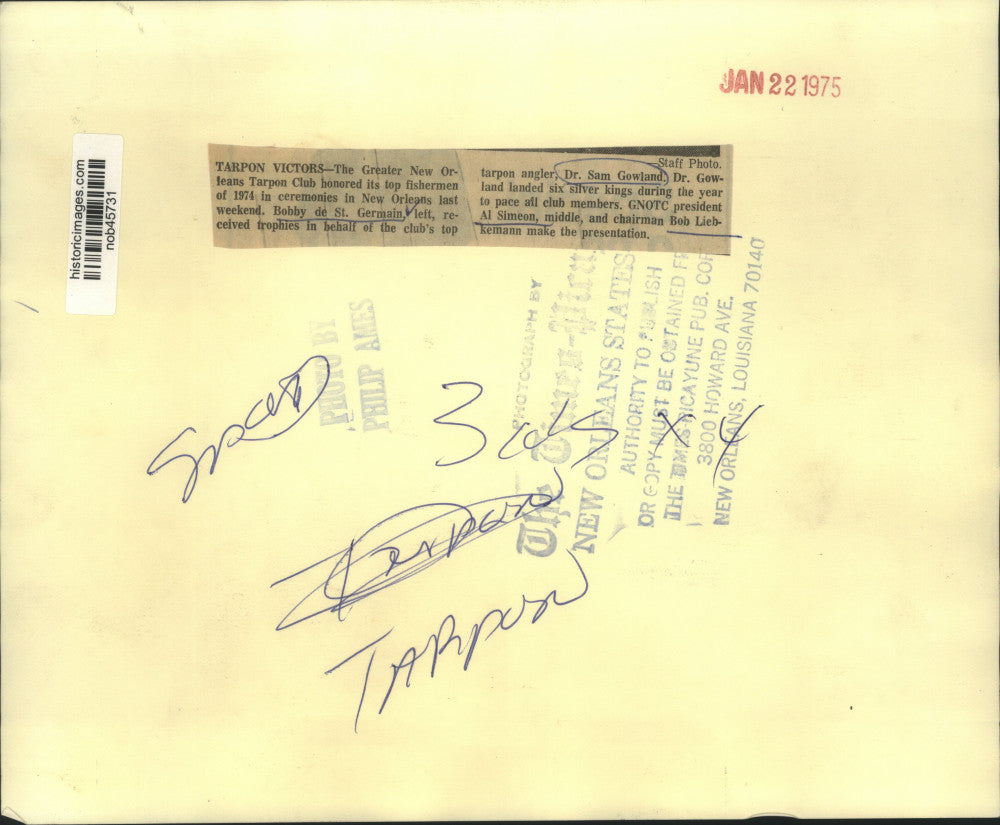 JAN 22 1975
historicimages.com
nob45731
TARPON VICTORS—The Greater New Or-
leans Tarpon Club honored its top fishermen
of 1974 in ceremonies in New Orleans last
weekend. Bobby de St. Germain, left, re-
ceived trophies in behalf of the club's top
Staff Photo.
tarpon angler, Dr. Sam Gowland. Dr. Gow-
land landed six silver kings during the year
to pace all club members. GNOTC president
Al Simeon, middle, and chairman Bob Lieb-
kemann make the presentation.
PHOTO BY
PHILIP AMES
PHOTOGRAPH BY
The Times-Picayune
NEW ORLEANS STATES
AUTHORITY TO PUBLISH
OR COPY MUST BE OBTAINED FR
THE TIMES-PICAYUNE PUB. COR
3800 HOWARD AVE.
NEW ORLEANS, LOUISIANA 70140
3 cols x 4
Tarpon
TARPON